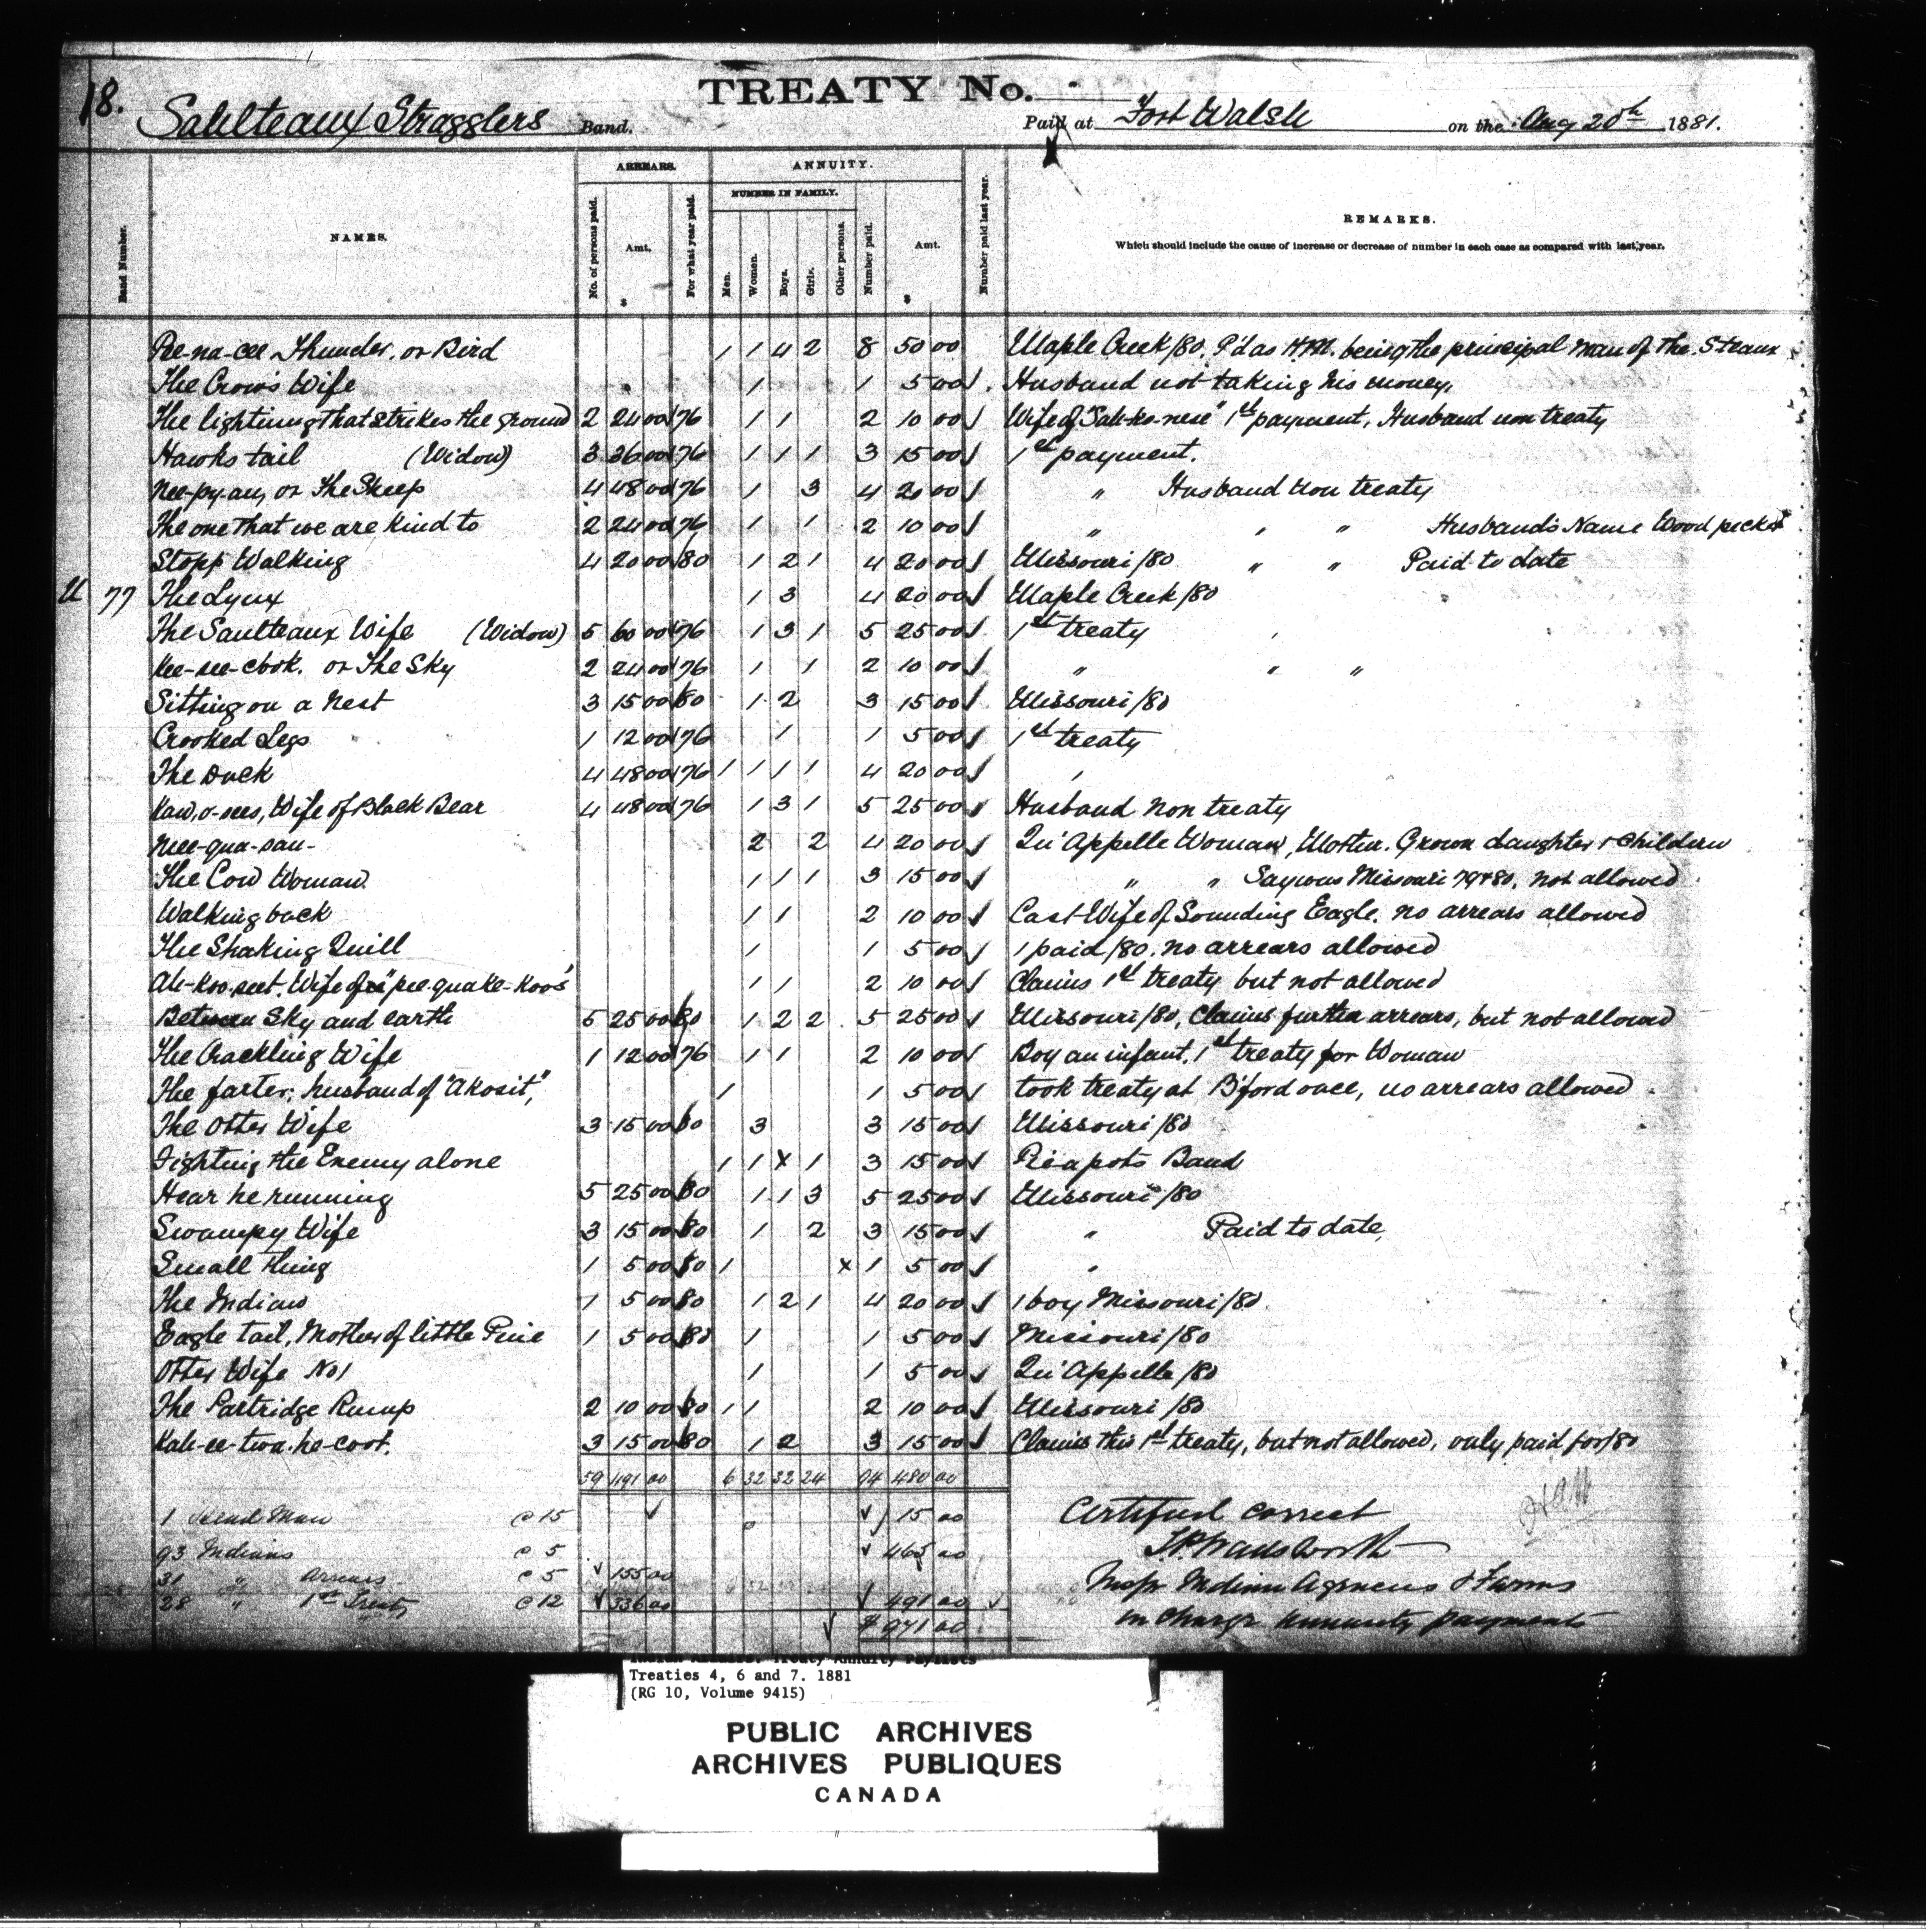 18.
TREATY No.
Saulteaux Stragglers Band.
Paid at Fort Walsh on the Aug 20th 1881.
Band Number.
NAMES.
ARREARS.
No. of persons paid.
Amt.
$
For what year paid.
ANNUITY.
NUMBER IN FAMILY.
Men.
Women.
Boys.
Girls.
Other persons.
Number paid.
Amt.
$
Number paid last year.
REMARKS.
Which should include the cause of increase or decrease of number in each case as compared with last year.
Pee-na-cee Thunder or Bird 1 1 4 2 8 50 00 Maple Creek/80. P'd as H.M. being the principal man of the Steaux
The Crow's Wife 1 1 5 00 Husband not taking his money,
The lightning that strikes the ground 2 24 00 76 1 1 2 10 00 Wife of 1st payment, Husband non treaty
Hawks tail (Widow) 3 36 00 76 1 1 1 3 15 00 1st payment.
Nee-py-an, or The Sleep 4 48 00 76 1 3 4 20 00 " Husband non treaty
The one that we are kind to 2 24 00 76 1 1 2 10 00 " " " Husband's Name Wood pecker
Stopp Walking 4 20 00 /80 1 2 1 4 20 00 Missouri/80 " " Paid to date
U 77 The Lynx 1 3 4 20 00 Maple Creek/80
The Saulteaux Wife (Widow) 5 60 00 76 1 3 1 5 25 00 1st treaty
Kee-see-cook. or The Sky 2 24 00 76 1 1 2 10 00 " " "
Sitting on a Nest 3 15 00 80 1 2 3 15 00 Missouri/80
Crooked Legs 1 12 00 76 1 1 5 00 1st treaty
The Duck 4 48 00 76 1 1 1 1 4 20 00 "
Kaw-o-sees, Wife of Black Bear 4 48 00 76 1 3 1 5 25 00 Husband non treaty
Mee-qua-sau- 2 2 4 20 00 Qu'Appelle Woman, Mother. Grown daughter & Children
The Cow Woman 1 1 1 3 15 00 " " Says was Missouri 79 & 80, not allowed
Walking back 1 1 2 10 00 Cast Wife of Sounding Eagle. no arrears allowed
The Shaking Quill 1 1 5 00 1 paid/80. no arrears allowed
Ah-koo-seet. Wife of "pee-quake-koos" 1 1 2 10 00 Claims 1st treaty but not allowed
Between Sky and earth 5 25 00 80 1 2 2 5 25 00 Missouri/80, Claims further arrears, but not allowed
The Crackling Wife 1 12 00 76 1 1 2 10 00 Boy an infant, 1st treaty for Woman
The farter, husband of "Akosit", 1 1 5 00 took treaty at B'ford once, no arrears allowed
The Otter Wife 3 15 00 80 3 3 15 00 Missouri/80
Fighting the Enemy alone 1 1 x 1 3 15 00 Piapots Band
Hear he running 5 25 00 80 1 1 3 5 25 00 Missouri/80
Swampy Wife 3 15 00 80 1 2 3 15 00 " Paid to date,
Small thing 1 5 00 80 1 x 1 5 00 "
The Indian 1 5 00 80 1 2 1 4 20 00 1 boy Missouri/80
Eagle tail, Mother of little Pine 1 5 00 80 1 1 5 00 Missouri/80
Otter Wife No 1 1 1 5 00 Qu'Appelle/80
The Partridge Rump 2 10 00 80 1 1 2 10 00 Missouri/80
Kah-ee-twa-he-coot. 3 15 00 80 1 2 3 15 00 Claims this 1st treaty, but not allowed, only paid for/80
59 491 00 6 32 32 24 94 480 00
1 Head Man @ 15 15 00
93 Indians @ 5 465 00
31 " Arrears @ 5 155 00
28 " 1st Treaty @ 12 336 00 491 00
$ 971 00
Certified correct
T.P. Wadsworth
Insp. Indian Agencies & Farms
in charge annuity payments
Indian Affairs. Treaty Annuity Paylists
Treaties 4, 6 and 7. 1881
(RG 10, Volume 9415)
PUBLIC ARCHIVES
ARCHIVES PUBLIQUES
CANADA